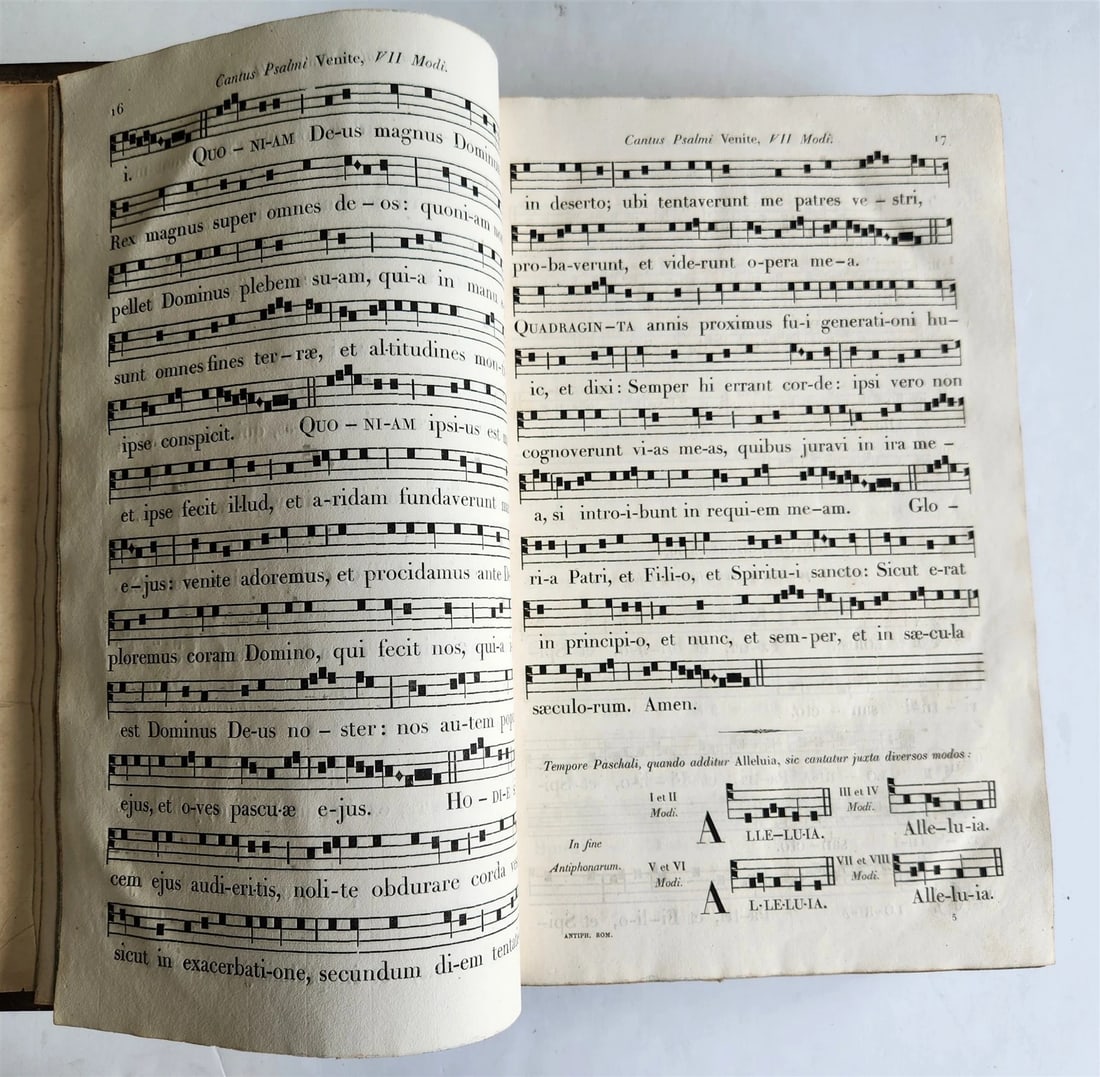 16
Cantus Psalmi Venite, VII Modi.
i. QUO – NI-AM De-us magnus
Rex magnus super omnes de – os: quoni-am
pellet Dominus plebem su-am, qui-a in
sunt omnes fines ter – ræ, et al-titudines
ipse conspicit. QUO – NI-AM ipsi-us est
et ipse fecit il-lud, et a-ridam fundaverunt
e-jus: venite adoremus, et procidamus ante
ploremus coram Domino, qui fecit nos, qui-a
est Dominus De-us no – ster: nos au-tem
ejus, et o-ves pascu-æ e-jus. HO – DI-E
cem ejus audi-eri-tis, noli-te obdurare corda
sicut in exacerbati-one, secundum di-em
Cantus Psalmi Venite, VII Modi.
17
in deserto; ubi tentaverunt me patres ve – stri,
pro-ba-verunt, et vide-runt o-pera me-a.
QUADRAGIN-TA annis proximus fu-i generati-oni hu-
ic, et dixi: Semper hi errant cor-de: ipsi vero non
cognoverunt vi-as me-as, quibus juravi in ira me –
a, si intro-i-bunt in requi-em me-am. Glo –
ri-a Patri, et Fi-li-o, et Spiritu-i sancto: Sicut e-rat
in principi-o, et nunc, et sem-per, et in sæ-cu-la
sæculo-rum. Amen.
Tempore Paschali, quando additur Alleluia, sic cantatur juxta diversos modos:
In fine
Antiphonarum.
I et II
Modi.
ALLE-LU-IA.
III et IV
Modi.
Alle-lu-ia.
V et VI
Modi.
AL-LE-LU-IA.
VII et VIII
Modi.
Alle-lu-ia.
ANTIPH. ROM.
5